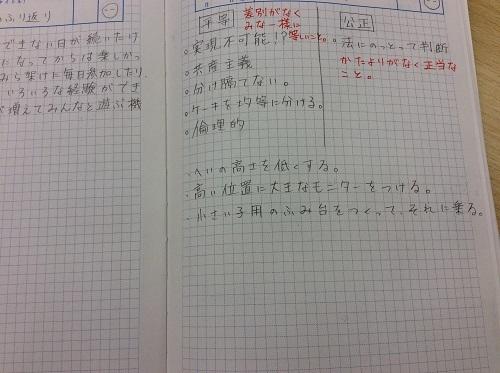 ふり返り
できない日が続いたけ
になってからは楽しかっ
架けに毎日参加したり、
いろいろな経験ができ
増えてみんなと遊ぶ機
平等
差別がなく
みな一様に
等しいこと。
。実現不可能!?
。共産主義
。分け隔てない。
。ケーキを均等に分ける。
。倫理的
公正
。法にのっとって判断
かたよりがなく正当な
こと。
・へいの高さを低くする。
・高い位置に大きなモニターをつける。
・小さい子用のふみ台をつくって、それに乗る。